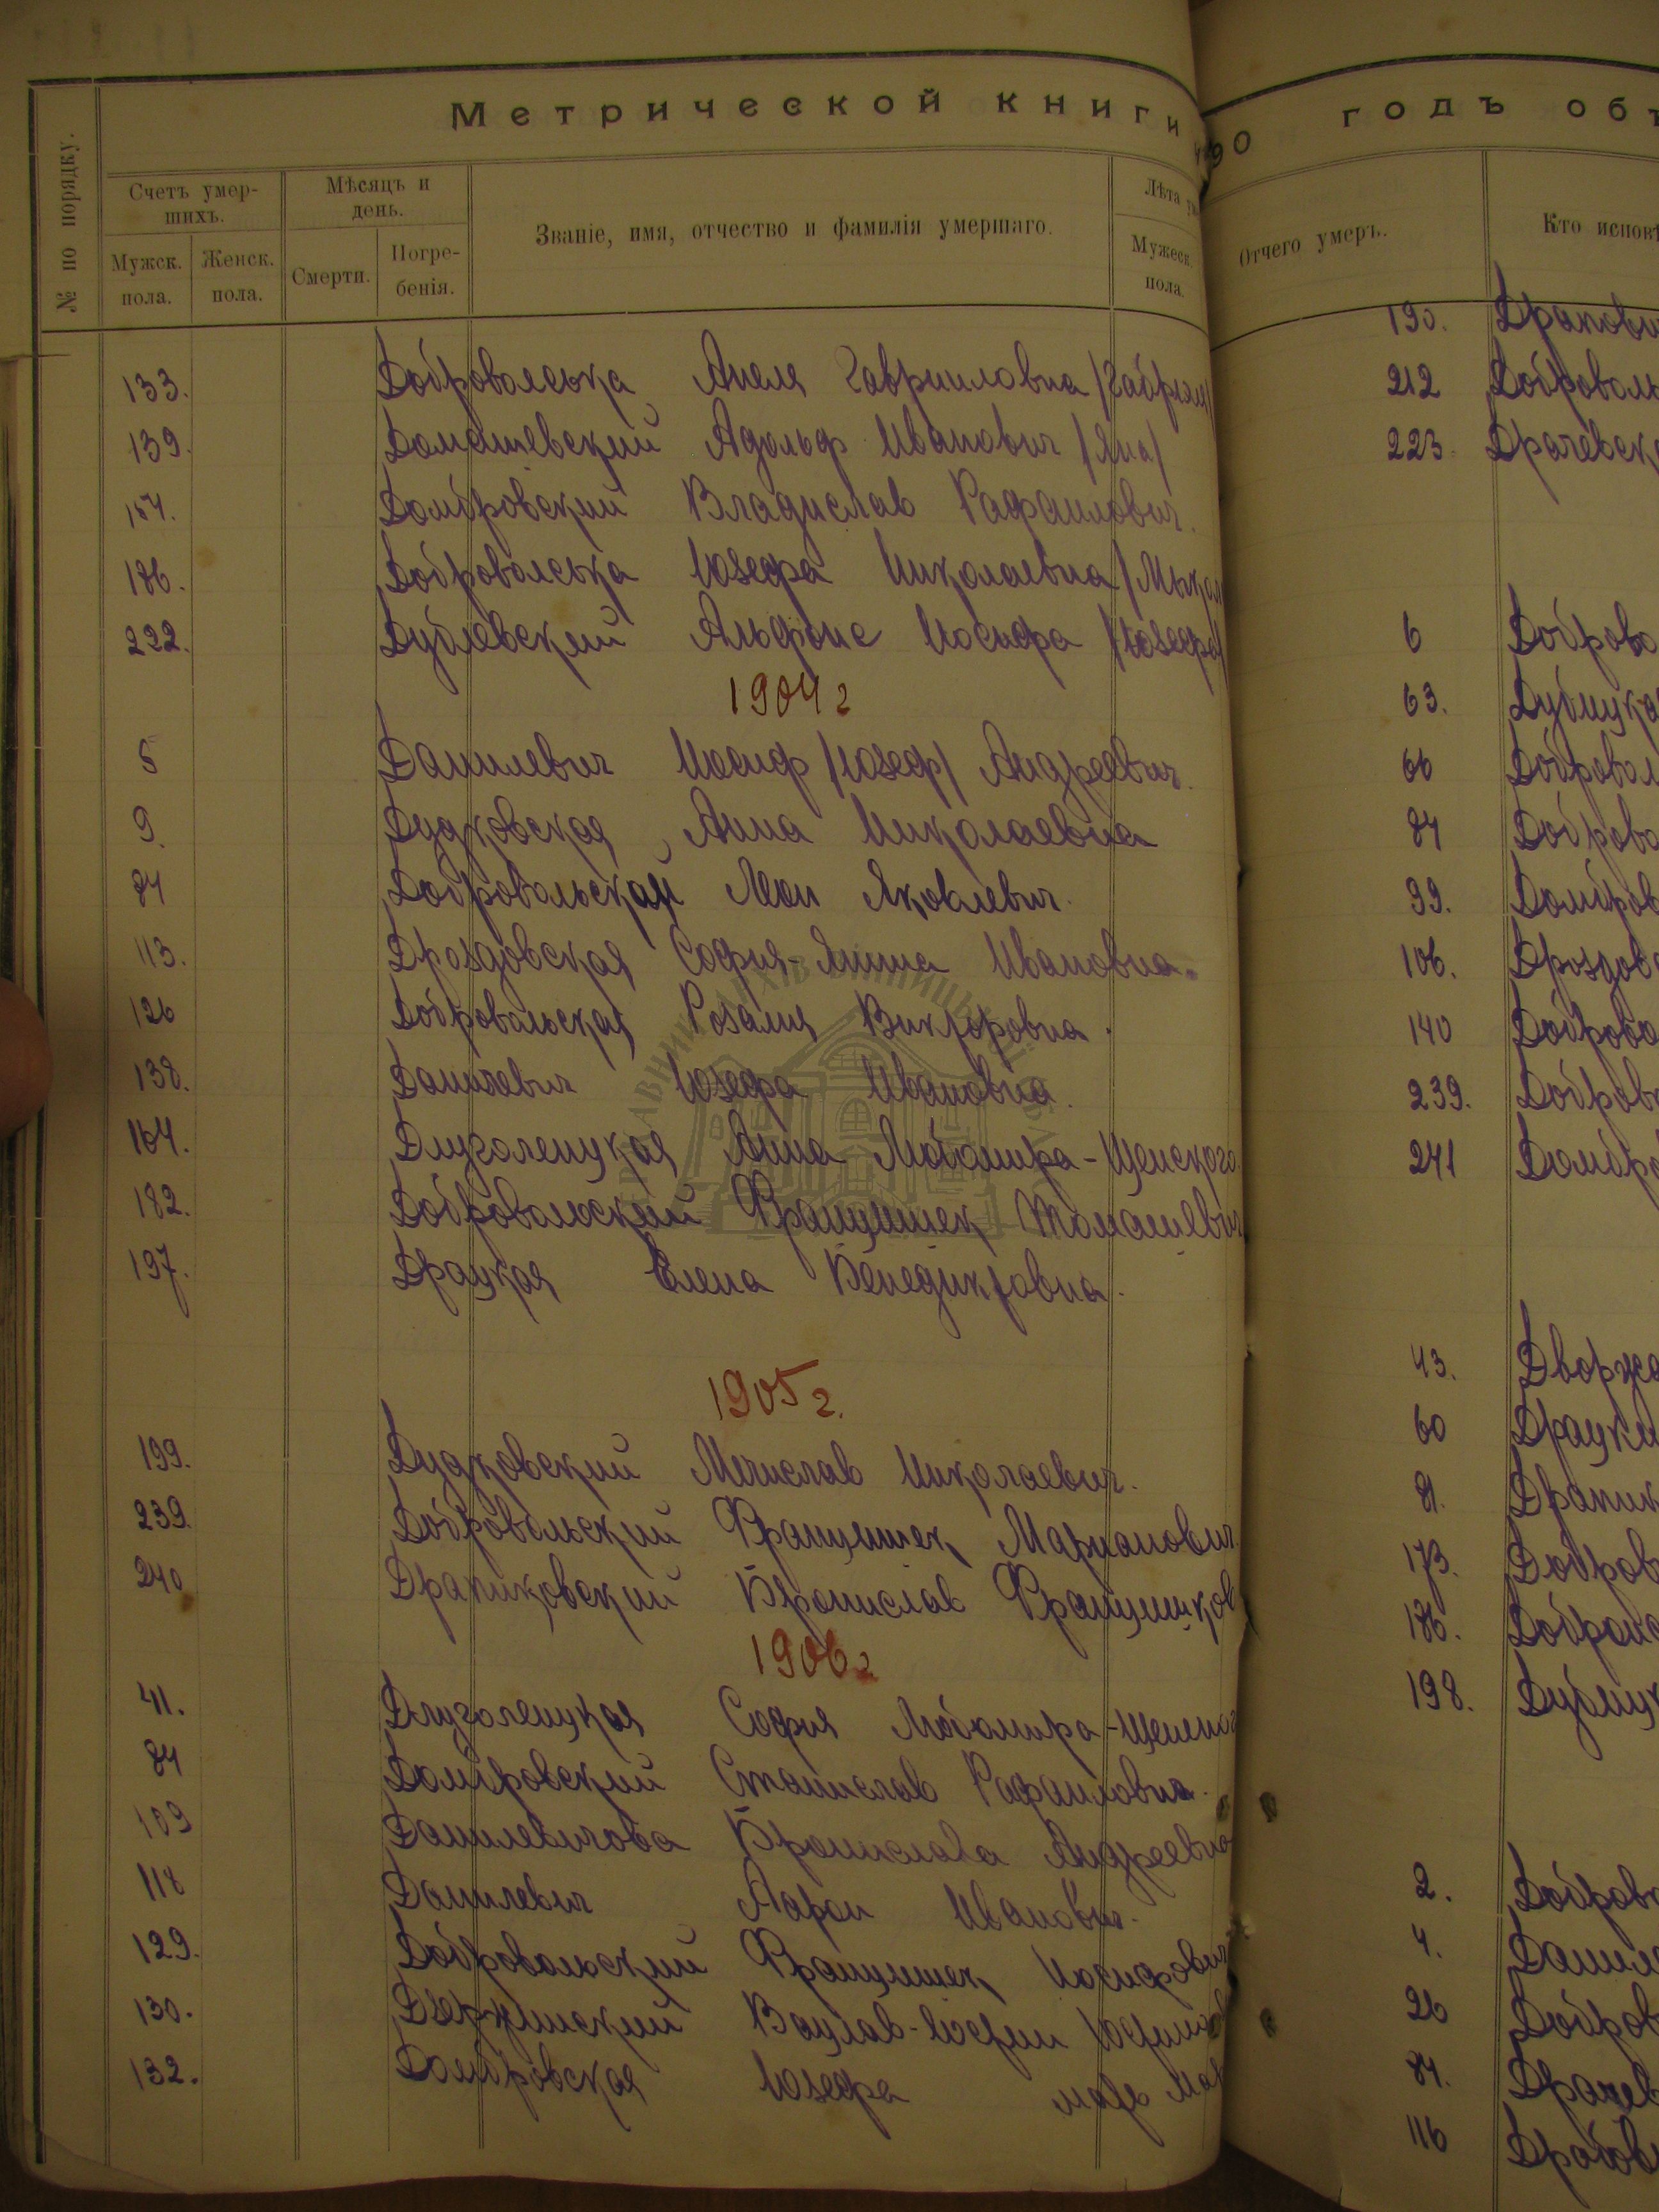 Метрической книги
190 годъ объ
№ по порядку.
Счетъ умер-
шихъ.
Мужск.
пола.
Женск.
пола.
Мѣсяцъ и
день.
Смерти.
Погре-
бенія.
Званіе, имя, отчество и фамилія умершаго.
Лѣта
Мужеск.
пола.
133. Добровольська Анеля Гавриловна /Габриэл/
139. Домашевский Адольф Иванович /Яна/
Домбровский Владислав Рафаилович.
186. Добровольська Юзефа Николаевна /Микол
222. Дублевский Альфонс Иосифа /Юзефа/
1904 г
5 Данилевич Иосиф /Юзеф/ Андреевич.
9. Дудковская Анна Николаевна
84 Леон Яковлевич.
113. Дроздовская София-Янина Ивановна.
126 Добровольская Розалия Викторовна.
138. Данилевич Юзефа Ивановна.
164. Длуголенцкая Анна Любомира-Щенского
182. Добровольский Францишек Томашевич
197. Драцкая Елена Бенедиктовна.
1905 г.
199. Дудковский Мечислав Николаевич.
239. Добровольский Францишек Марианович.
240 Драпиковский Бронислав Францишков
1906 г
41. Длуголенцкая София Любомира-Щенског
84 Домбровский Станислав Рафаилович.
109 Данилевичова Бронислава Андреевна
118 Данилевич Иванович.
129. Добровольский Францишек Иосифович
130. Дзержинский Вацлав-
132. Домбровская Юзефа
Отчего умеръ.
Кто исповѣ
190.
212 Доброволь
223. Драчевск
6 Доброво
63.
66 Добровол
84 Доброво
99. Домбров
106. Дроздов
140 Доброво
239. Добров
241 Домбр
43. Дворжа
60 Драцки
81. Драпик
173. Добров
186.
198.
2. Добров
4. Данил
26 Добров
84. Драчев
116